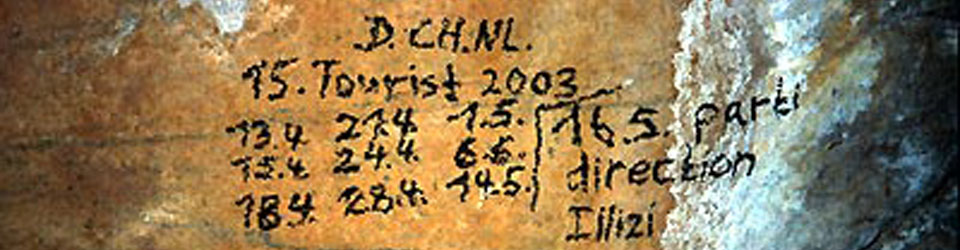 D. CH. NL.
15. Tourist 2003
13.4. 21.4. 1.5. 16.5. parti
15.4. 24.4. 6.5. direction
18.4. 28.4. 14.5. Illizi